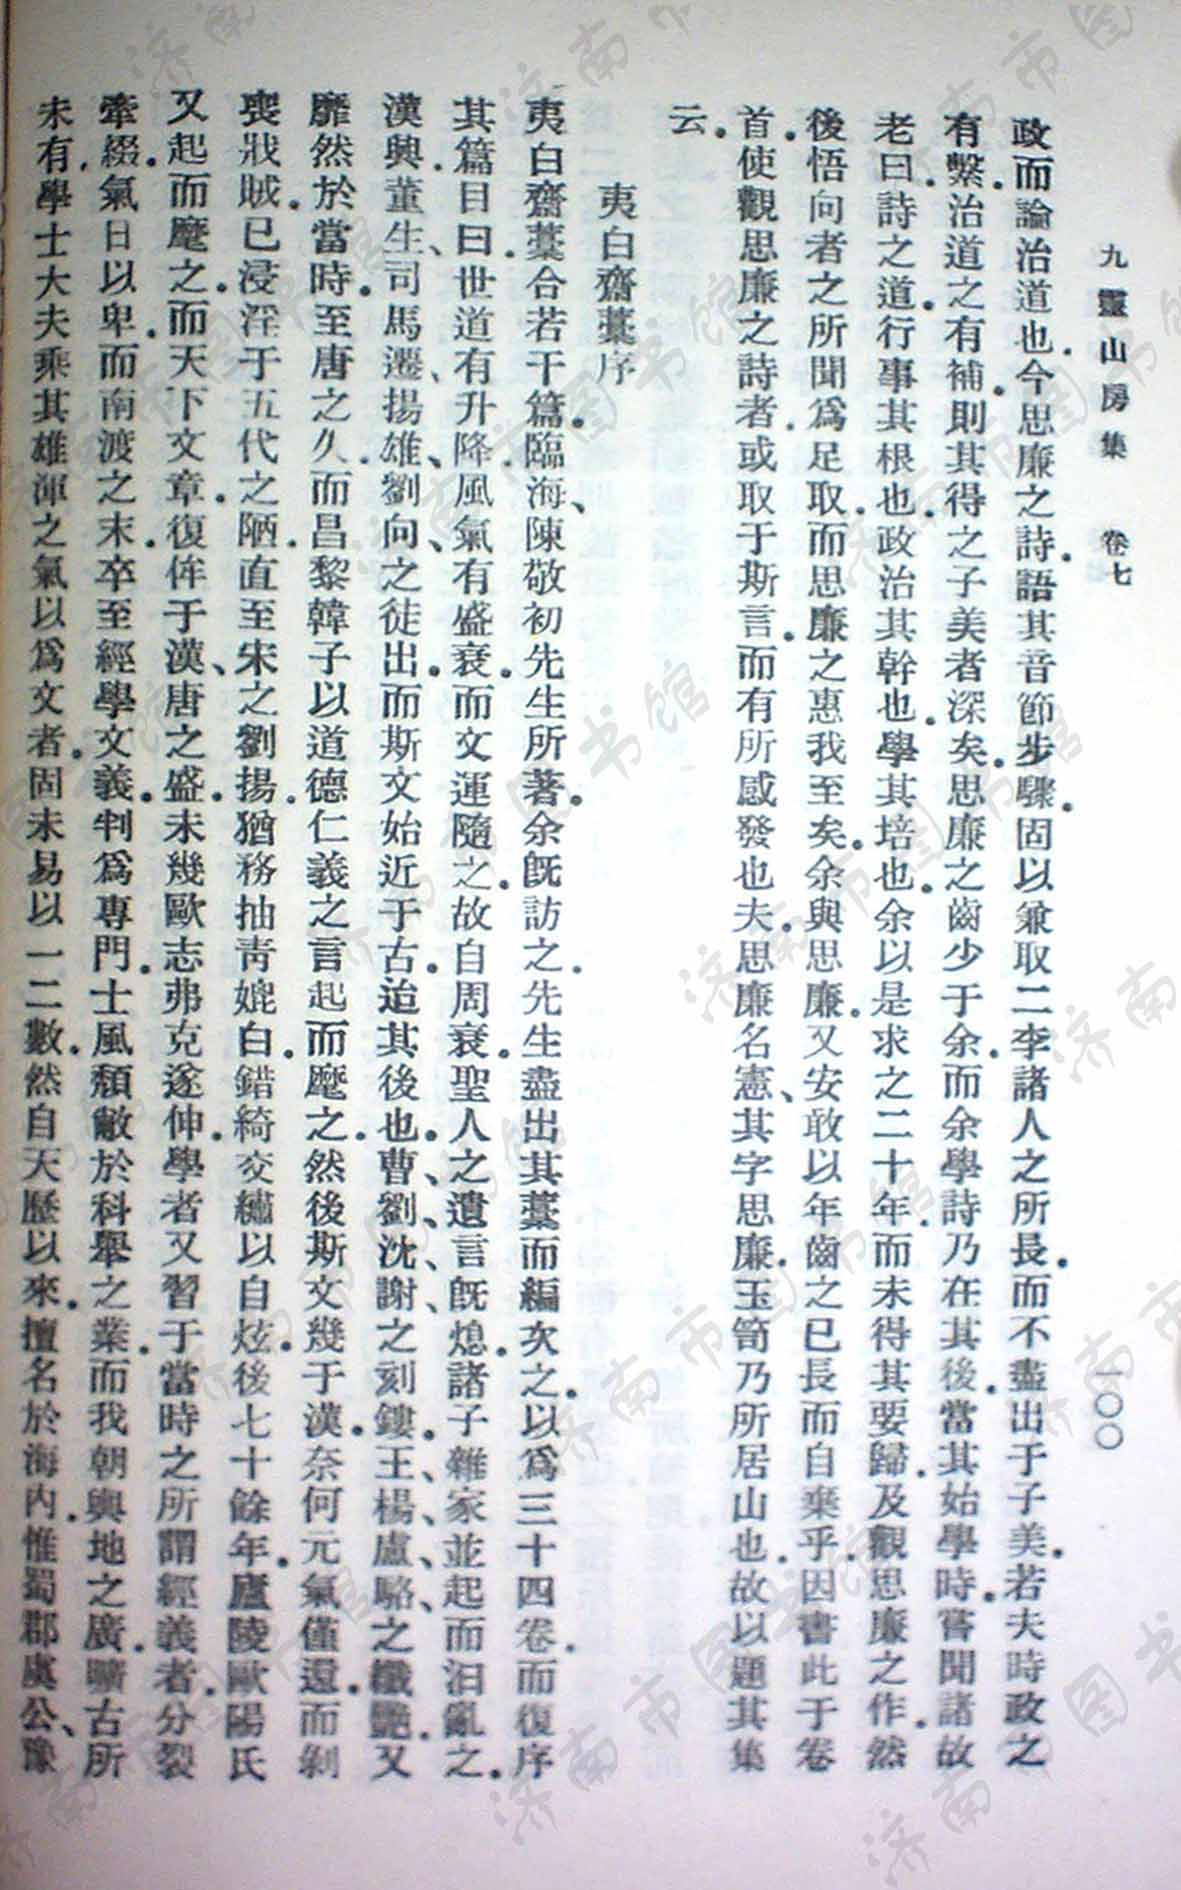 九靈山房集 卷七 一〇〇
政而論治道也.今思廉之詩.語其音節步驟.固以兼取二李諸人之所長.而不盡出于子美.若夫時政之
有繫.治道之有補.則其得之子美者深矣.思廉之齒少于余.而余學詩乃在其後.當其始學時.嘗聞諸故
老曰.詩之道.行事其根也.政治其幹也.學其培也.余以是求之二十年.而未得其要歸.及觀思廉之作.然
後悟向者之所聞.爲足取.而思廉之惠我至矣.余與思廉.又安敢以年齒之已長而自棄乎.因書此于卷
首.使觀思廉之詩者.或取于斯言.而有所感發也夫.思廉名憲、其字思廉.玉笥乃所居山也.故以題其集
云.
夷白齋藁序
夷白齋藁.合若干篇.臨海、陳敬初先生所著.余旣訪之.先生盡出其藁而編次之.以爲三十四卷.而復序
其篇目曰.世道有升降.風氣有盛衰.而文運隨之.故自周衰.聖人之遺言旣熄.諸子雜家並起而汨亂之.
漢興.董生、司馬遷、揚雄、劉向、之徒出.而斯文始近于古.迨其後也.曹、劉、沈、謝、之刻鏤.王、楊、盧、駱、之纖豔.又
靡然於當時.至唐之久.而昌黎韓子以道德仁義之言起而麾之.然後斯文幾于漢.奈何元氣僅還.而剝
喪戕賊.已浸淫于五代之陋.直至宋之劉揚.猶務抽靑媲白.錯綺交繡以自炫.後七十餘年.廬陵歐陽氏
又起而麾之.而天下文章.復侔于漢、唐之盛.未幾歐志弗克遂伸.學者又習于當時之所謂經義者.分裂
牽綴.氣日以卑.而南渡之末.卒至經學文義.判爲專門.士風頹敝於科舉之業.而我朝輿地之廣.曠古所
未有.學士大夫乘其雄渾之氣以爲文者.固未易以一二數.然自天歷以來.擅名於海內.惟蜀郡虞公、豫
济南市图书馆